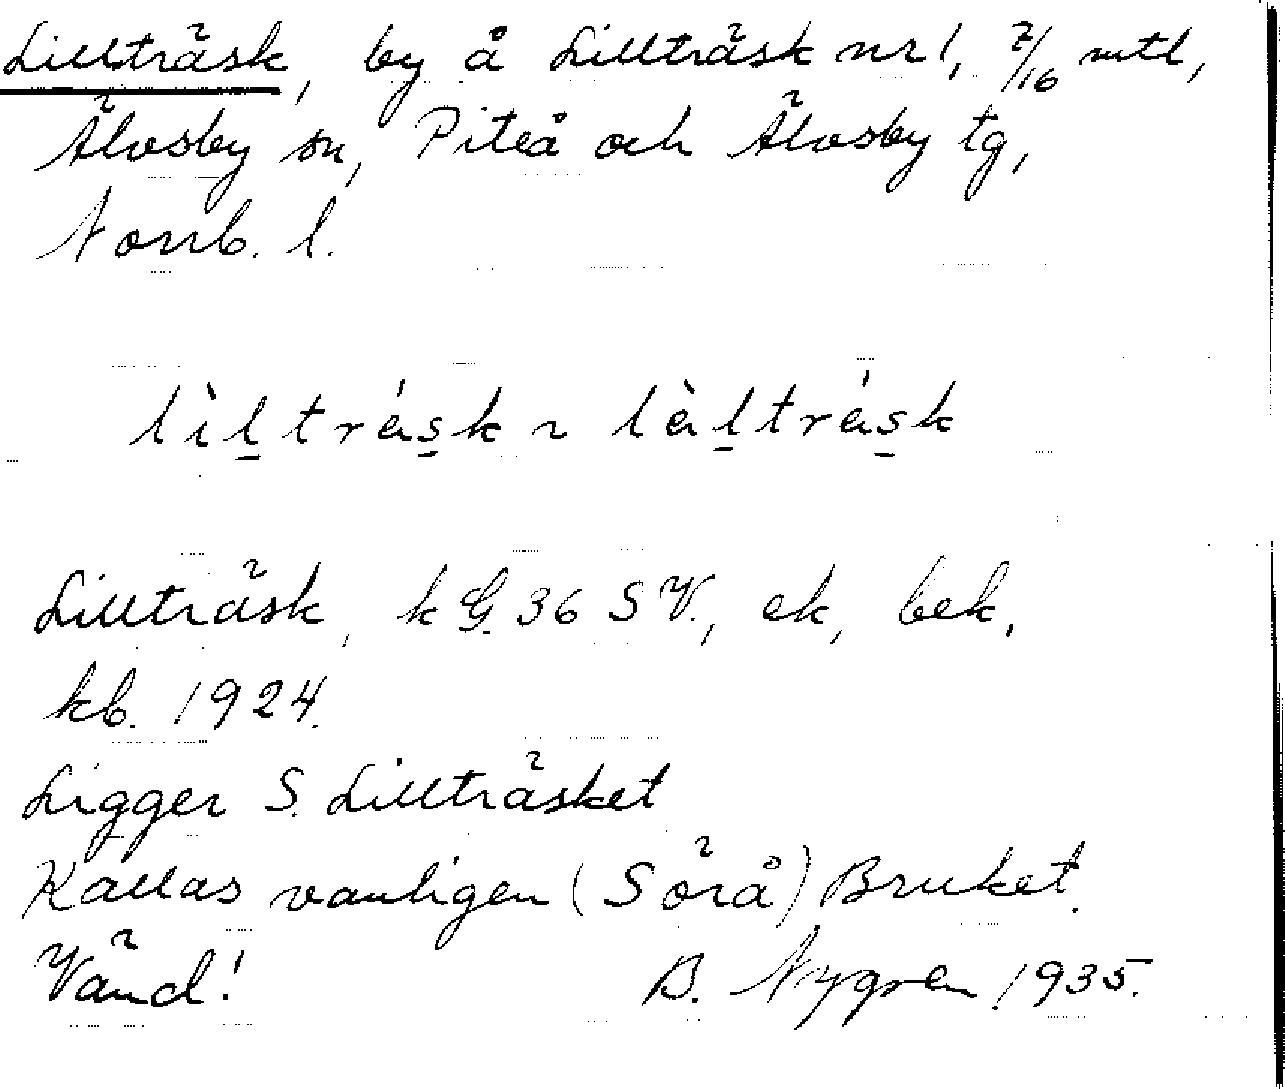 Lillträsk, by å Lillträsk nr 1, 7/16 mtl,
Älvsby sn, Piteå och Älvsby tg,
Norrb. l.
lìl̠trás̠k ~ làl̠trás̠k
Lillträsk, k G. 36 SV., ek, bek,
kb. 1924.
Ligger S. Lillträsket
Kallas vanligen (Sörå) Bruket.
Vänd! B. Nygren 1935.